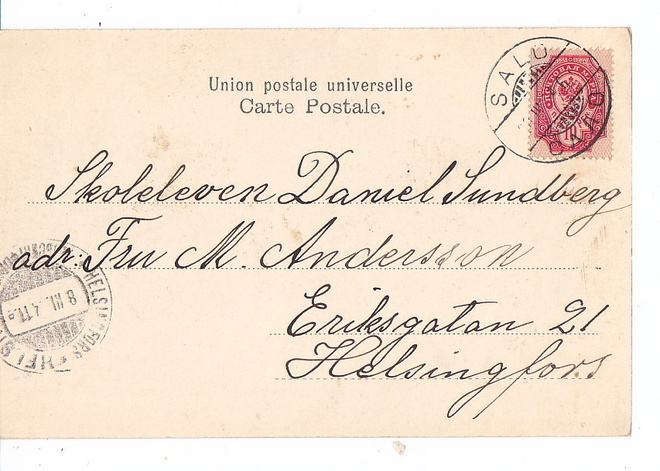 Union postale universelle
Carte Postale.
SALO
САЛО
ПОЧТОВАЯ МАРКА
Skoleleven Daniel Sundberg
adr: Fru M. Andersson
Eriksgatan 21
Helsingfors
HELSINGFORS
8.III.4.11
HELS